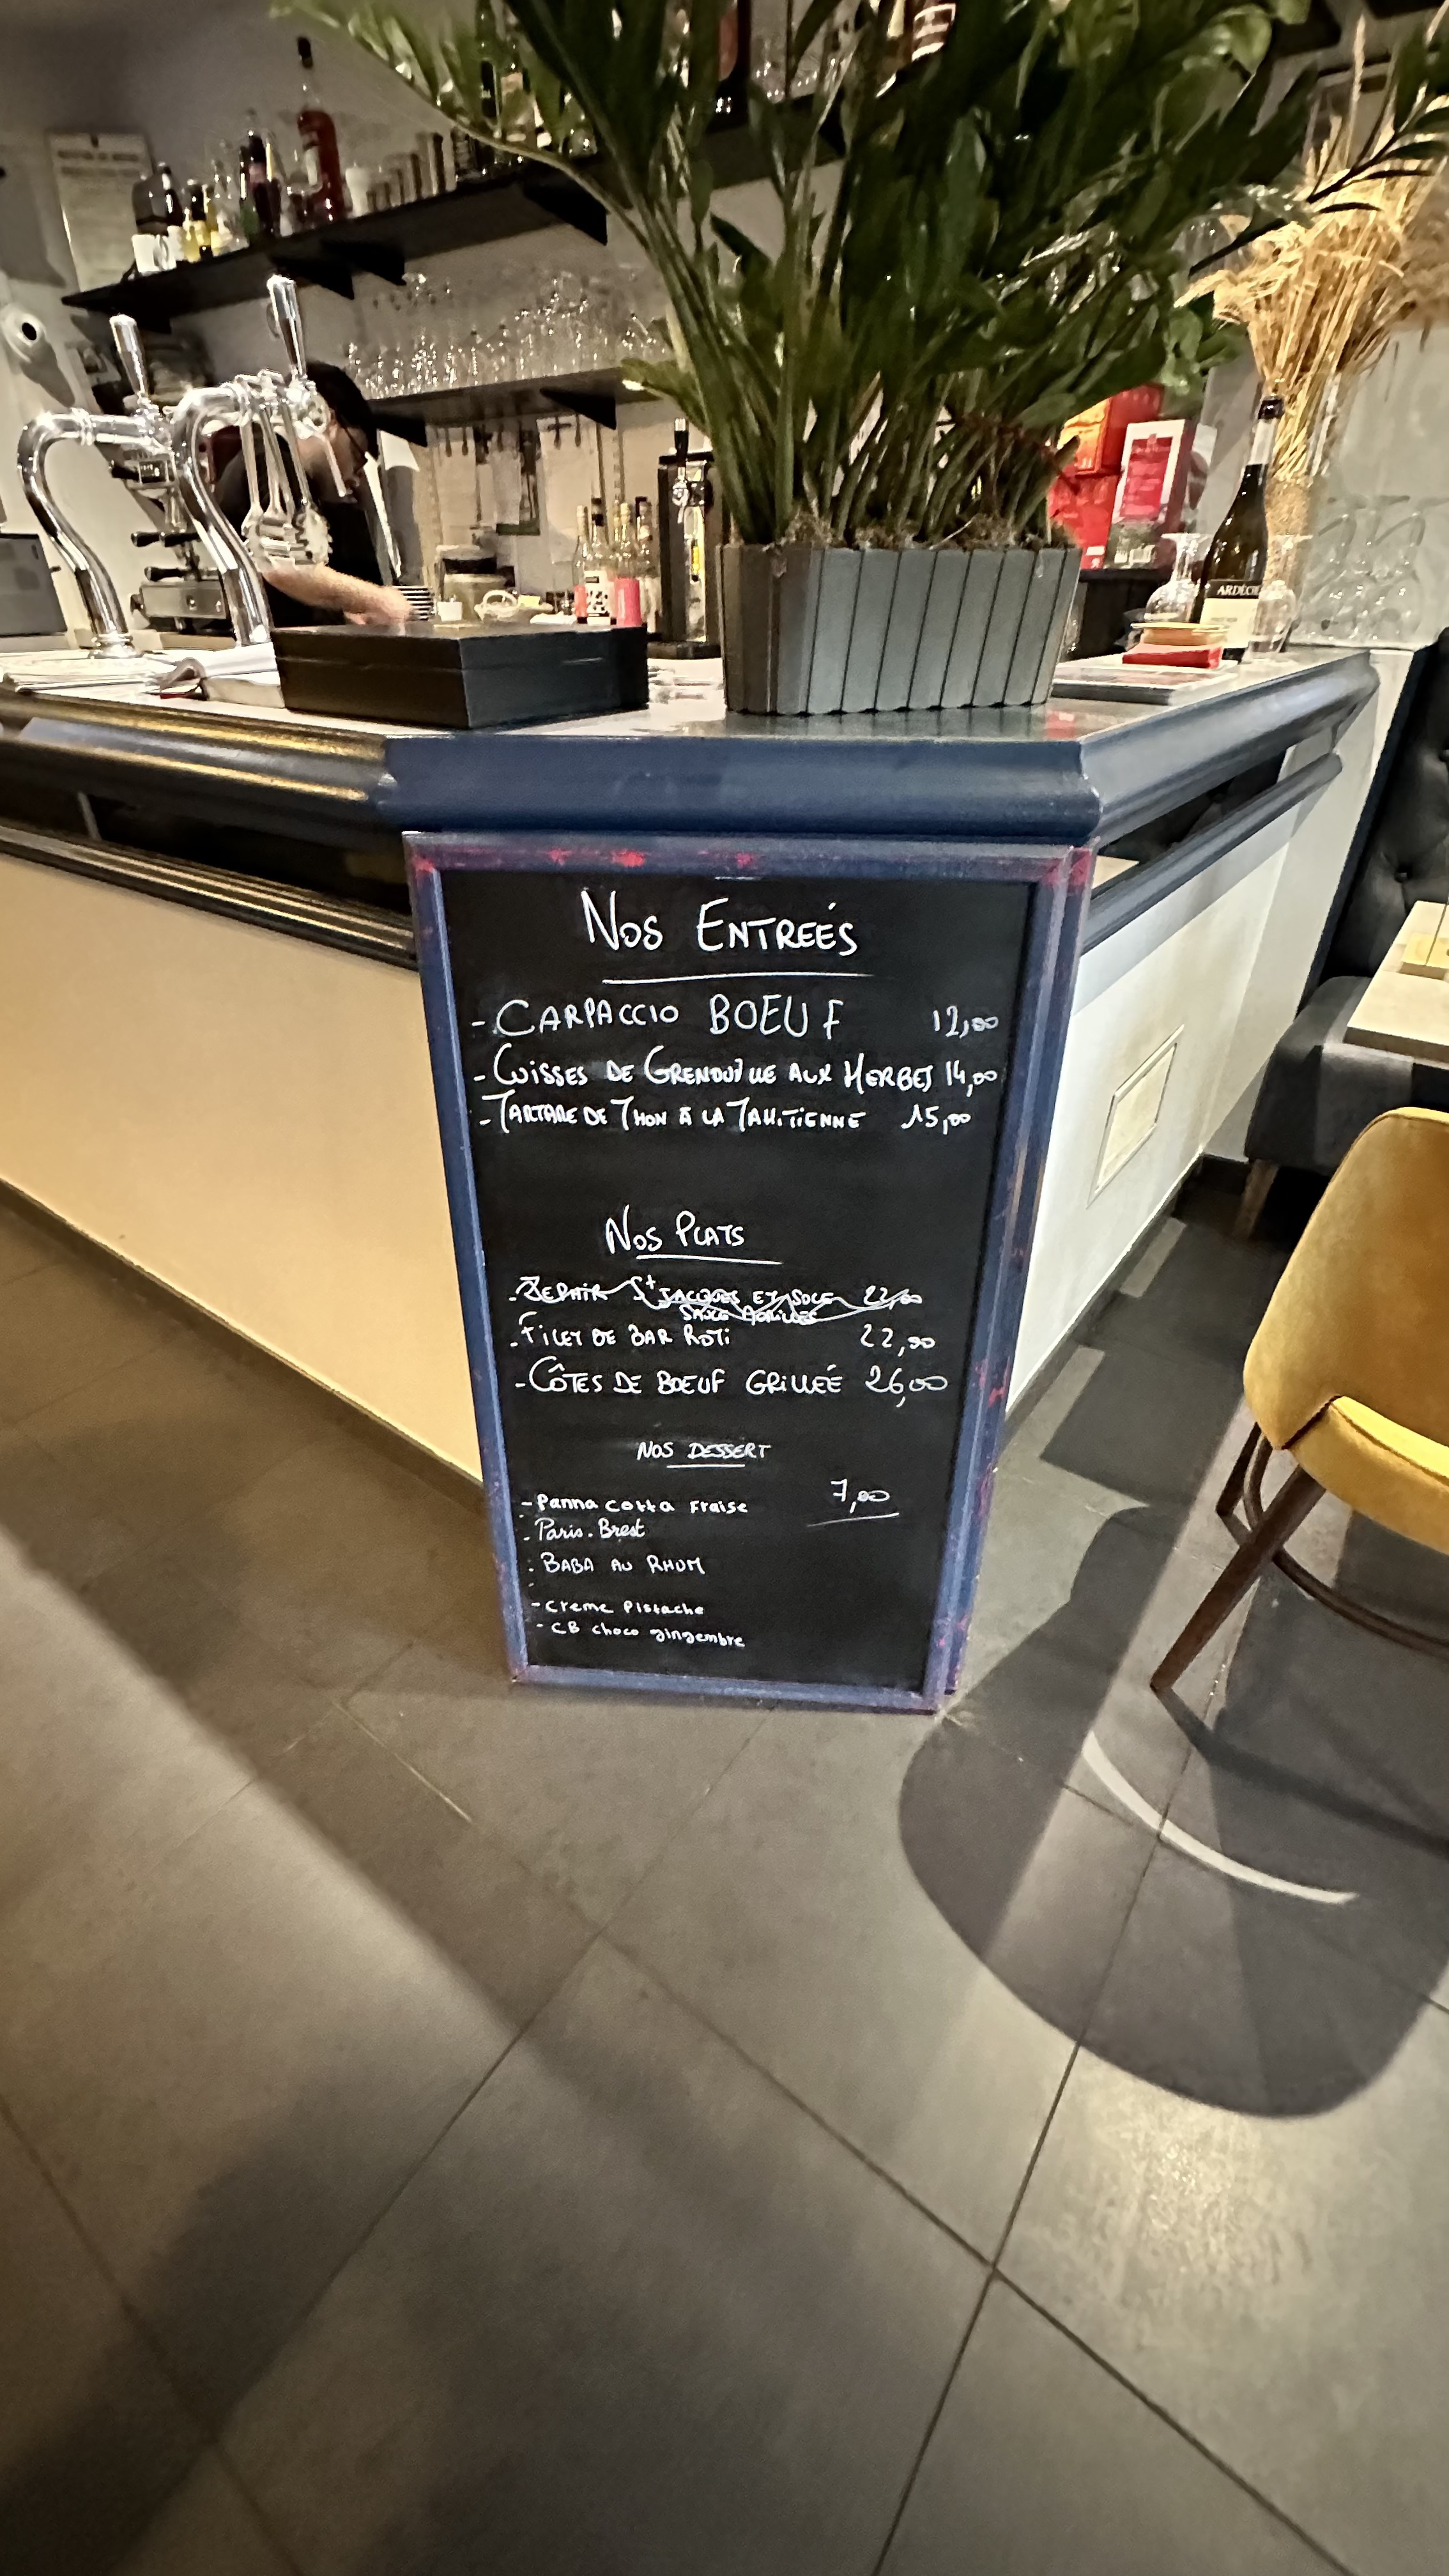 ARDÈCHE
NOS ENTREÉS
- CARPACCIO BOEUF 12,00
- CUISSES DE GRENOUILLE AUX HERBES 14,00
- TARTARE DE THON À LA TAHITIENNE 15,00
NOS PLATS
ST JACQUES ET SOLE 22,00
SAUCE
- FILET DE BAR ROTI 22,00
- CÔTES DE BOEUF GRILLEÉ 26,00
NOS DESSERT
- Panna cotta Fraise 7,00
- Paris-Brest
- BABA AU RHUM
- creme Pistache
- CB choco gingembre